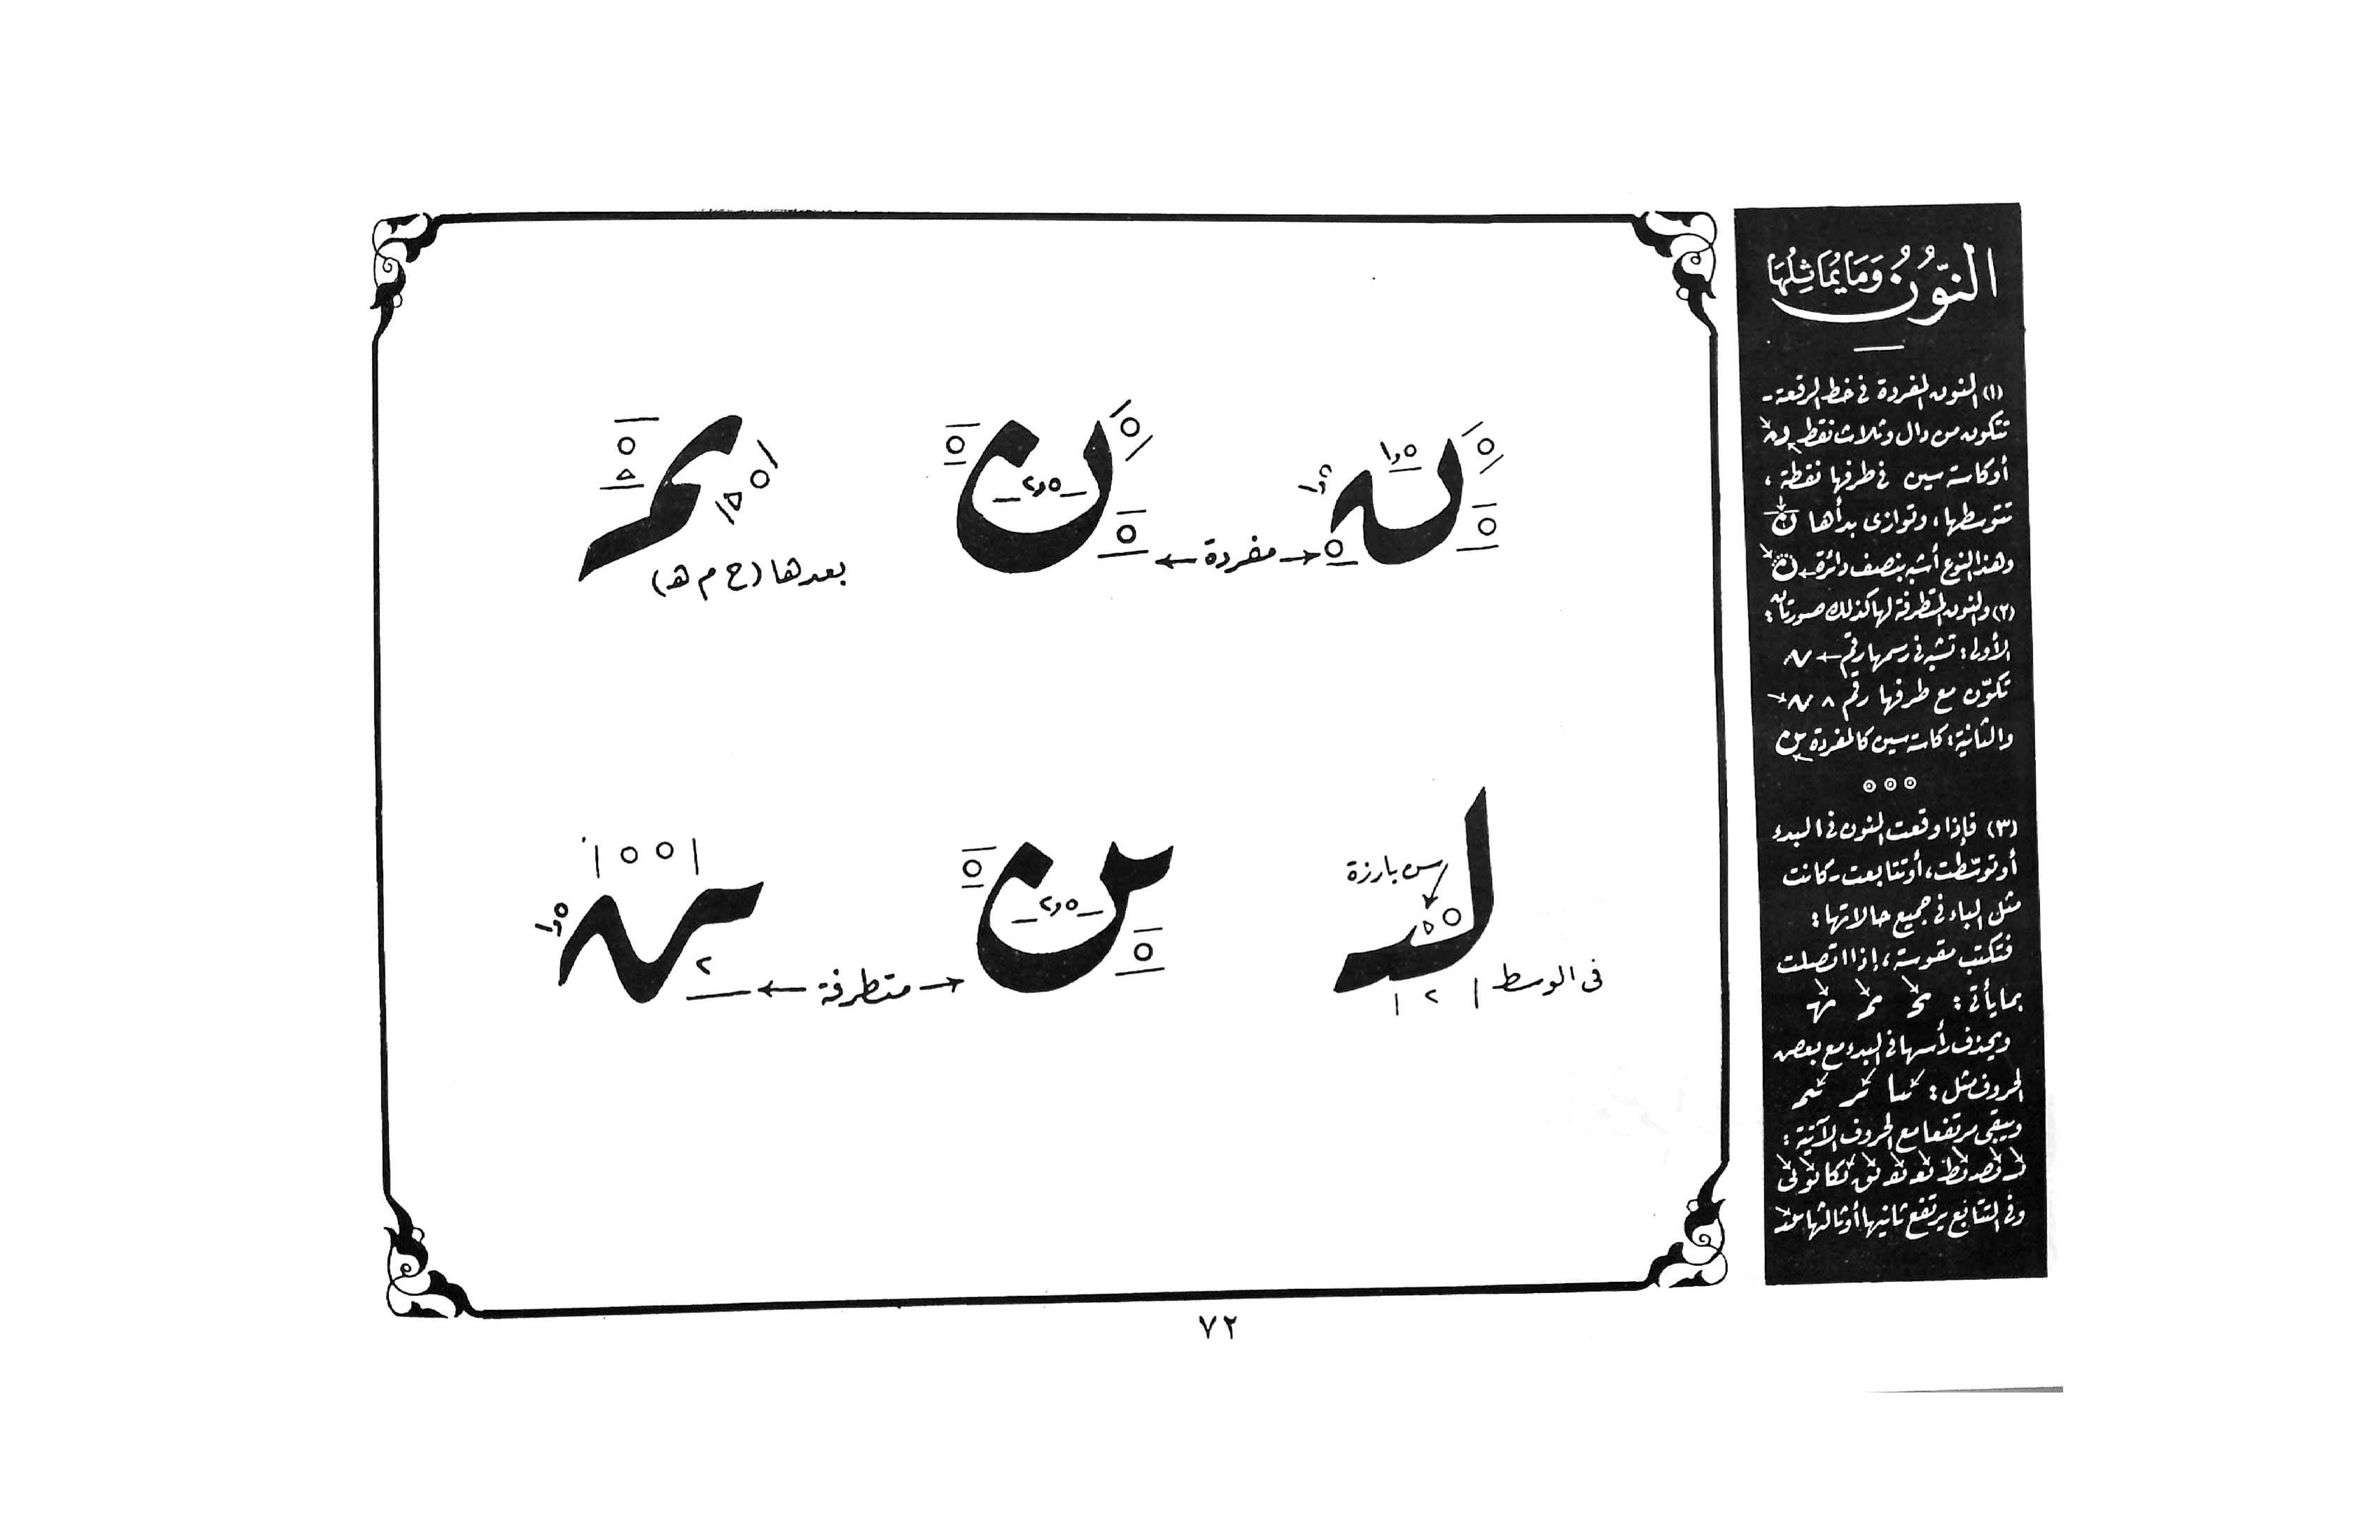 النُّونُ وَمَا يُمَاثِلُهَا
(١) النون المفردة فى خط الرقعة -
تتكون من دال وثلاث نقط
أو كاسة سين فى طرفها نقطة ،
تتوسطها ، وتوازى بدأها ن
وهذا النوع أشبه بنصف دائرة ← ن
(٢) والنون المتطرفة لها كذلك صورتان :
الأولى : تشبه فى رسمها رقم ←
تكوّن مع طرفها رقم ٨
والثانية : كاسة سين كالمفردة
(٣) فإذا وقعت النون فى البدء
أو توسّطت ، أو تتابعت - كانت
مثل الباء فى جميع حالاتها :
فتكتب مقوسة ، إذا اتصلت
بما يأتى :
ويحذف رأسها فى البدء مع بعض
الحروف مثل :
ويبقى مرتفعا مع الحروف الآتية :
وفى التتابع يرتفع ثانيها أو ثالثها
١٫٥
١٫٥
← مفردة →
٢٫٥
بعدها (ح م هـ)
س بارزة
فى الوسط
٢
٢٫٥
← متطرفة →
٢
١٫٥
٧٢